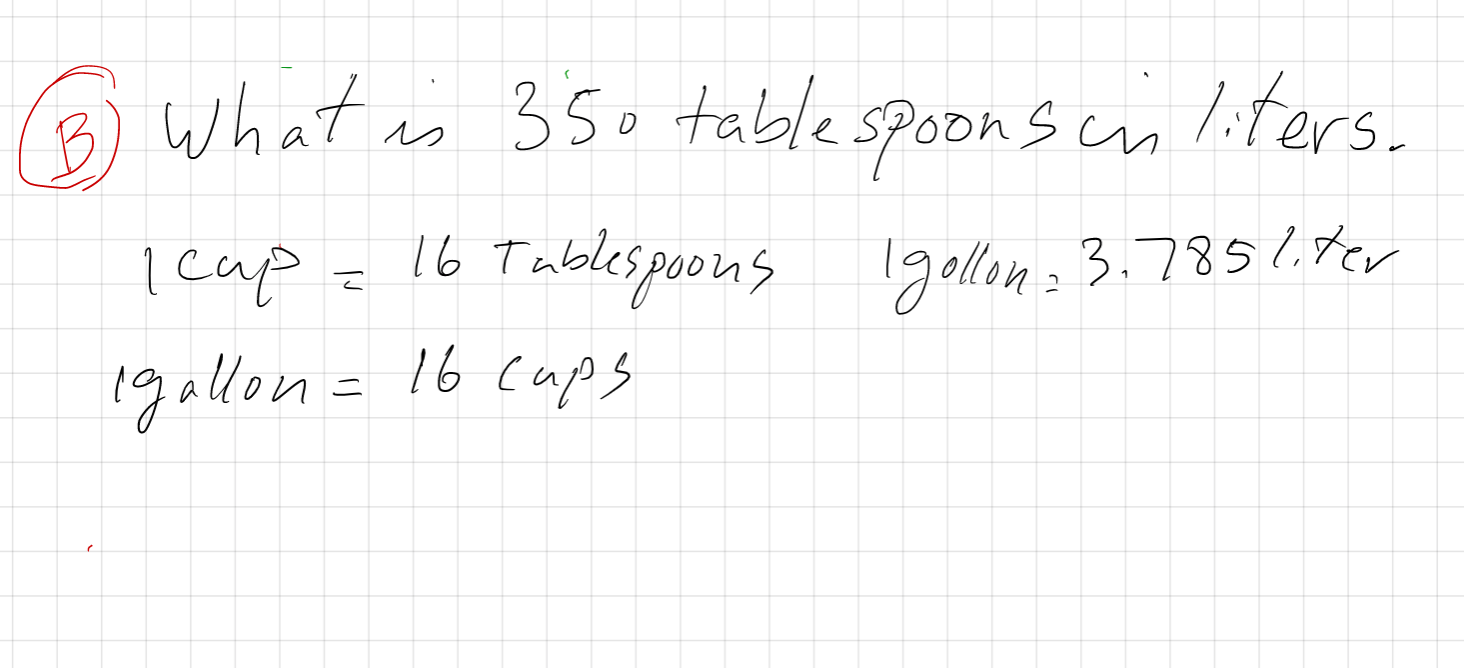 B What is 350 tablespoons in liters.
1 cup = 16 Tablespoons 1 gollon = 3.785 liter
1 gallon = 16 cups